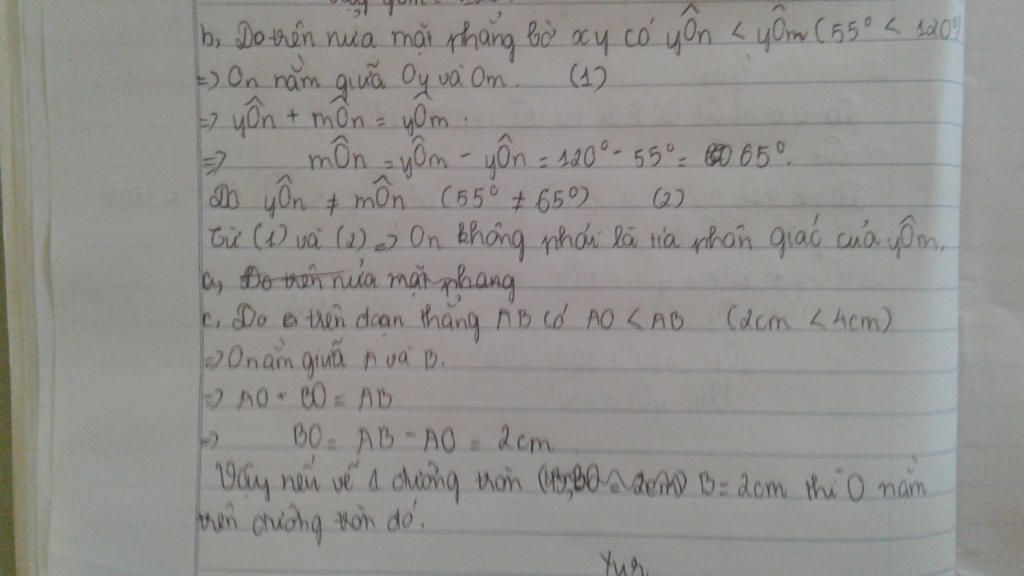 b, Do trên nửa mặt phẳng bờ xy có yÔn < yÔm (55° < 120°)
=> On nằm giữa Oy và Om. (1)
=> yÔn + mÔn = yÔm.
=> mÔn = yÔm - yÔn = 120° - 55° = 65°.
Do yÔn ≠ mÔn (55° ≠ 65°) (2)
Từ (1) và (2) => On không phải là tia phân giác của yÔm.
a, Do trên nửa mặt phẳng
c, Do trên đoạn thẳng AB có AO < AB (2cm < 4cm)
=> O nằm giữa A và B.
=> AO + BO = AB
=> BO = AB - AO = 2cm
Vậy nếu vẽ 1 đường tròn B = 2cm thì O nằm
trên đường tròn đó.